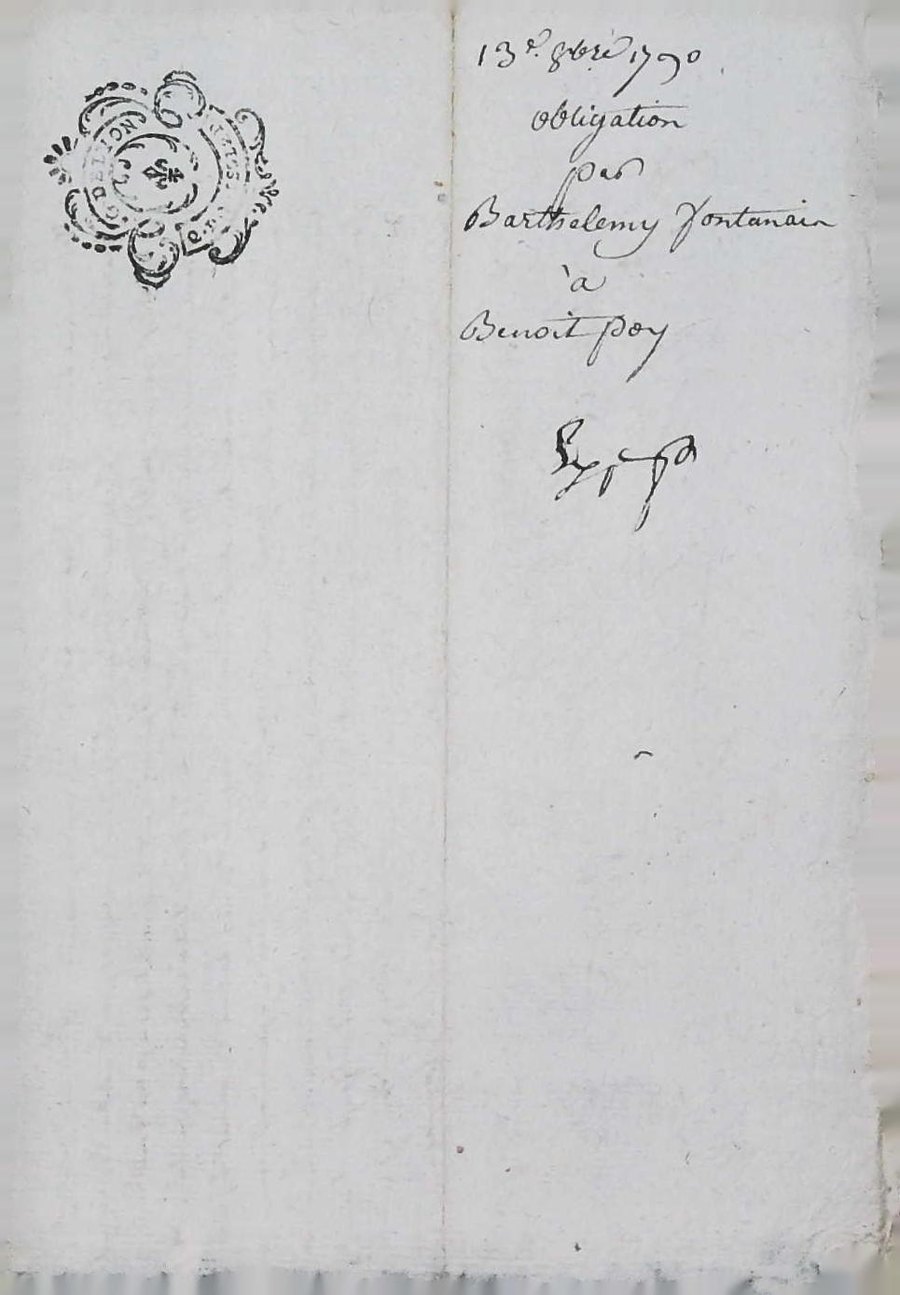 G DE LION
13e. 8bre 1790
obligation
par
Barthelemy fontanain
à
Benoit poy